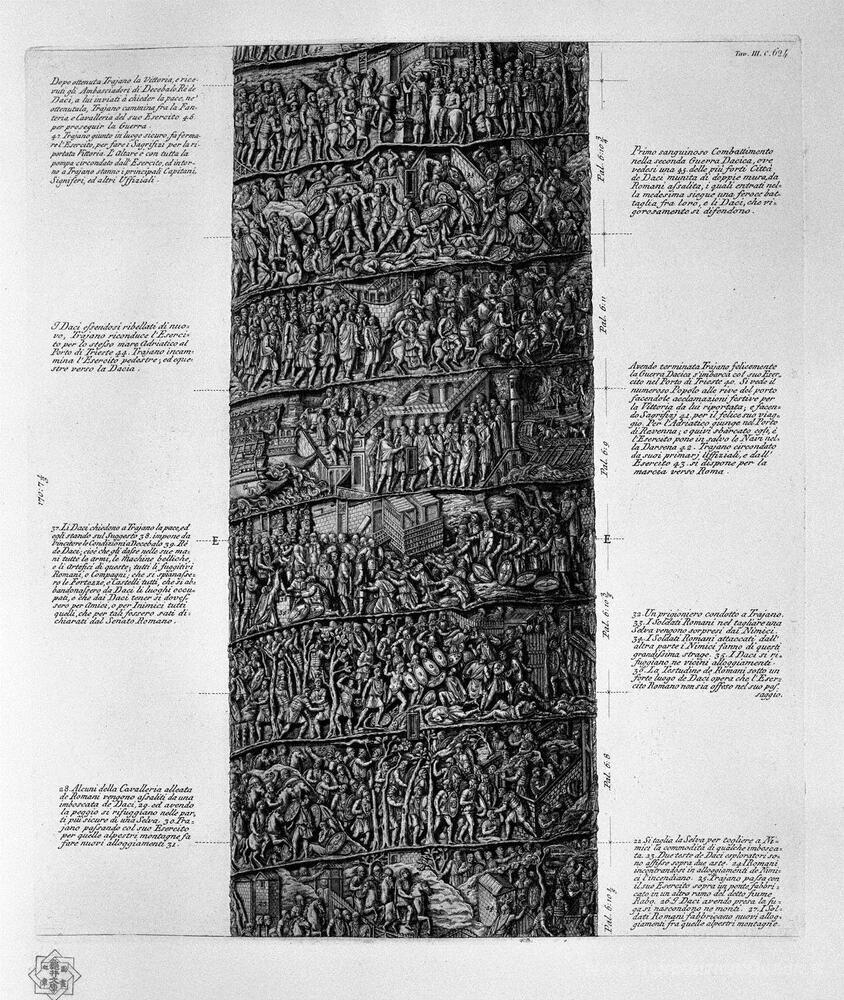 Tav. III. C. 624
Dopo ottenuta Trajano la Vittoria, e rice-
vuti gli Ambasciadori di Decebalo Rè de
Daci, a lui inviati à chieder la pace, ne'
ottenutala, Trajano cammina fra la Fan-
teria e Cavalleria del suo Esercito 46.
per proseguir la Guerra.
47. Trajano giunto in luogo sicuro, fa ferma-
re l'Esercito, per fare i Sagrifizj per la ri-
portata Vittoria. E Altare e con tutta la
pompa circondato dall' Esercito, ed intor-
no a Trajano stanno i principali Capitani,
Signiferi, ed altri Uffiziali.
Primo sanguinoso Combattimento
nella seconda Guerra Dacica, ove
vedesi una 45. delle più forti Città
de Daci munita di doppie mura, da
Romani assalita, i quali entrati nel-
la medesima siegue una feroce bat-
taglia fra loro, e li Daci, che vi-
gorosamente si difendono.
I Daci essendosi ribellati di nuo-
vo, Trajano riconduce l'Eserci-
to per lo stesso mare Adriatico al
Porto di Trieste 44. Trajano incam-
mina l'Esercito pedestre, ed eque-
stre verso la Dacia.
Avendo terminata Trajano felicemente
la Guerra Dacica s'imbarca col suo Eser-
cito nel Porto di Trieste 40. Si vede il
numeroso Popolo alle rive del porto
facendole acclamazioni festive per
la Vittoria da lui riportata; e facen-
do Sagrifizj 41. per il felice suo viag-
gio. Per l'Adriatico giunge nel Porto
di Ravenna; e quivi sbarcato egli, è
l'Esercito pone in salvo le Navi nel-
la Darsena 42. Trajano circondato
da suoi primarj Uffiziali, e dall'
Esercito 43. si dispone per la
marcia verso Roma.
37. Li Daci chiedono a Trajano la pace, ed
egli stando sul Suggesto 38. impone da
Vincitore le Condizioni a Decebalo 39. Rè
de Daci; cioè che gli dasse nelle sue ma-
ni tutte la armi, le Machine belliche,
e li Artefici di queste; tutti li fuggitivi
Romani, e Compagni; che si spianasse-
ro le Fortezze, e Castelli tutti, che si ab-
bandonassero da Daci li luoghi occu-
pati, e che dai Daci tener si dovesse-
sero per Amici, o per Inimici tutti
quelli, che per tali fossero sati di-
chiarati dal Senato Romano.
E
E
32. Un prigioniero condotto a Trajano.
33. I Soldati Romani nel tagliare una
Selva vengono sorpresi dai Nimici.
34. I Soldati Romani attaccati dall'
altra parte i Nimici fanno di questi
grandissima strage. 35. I Daci si ri-
fuggiano ne vicini alloggiamenti.
36. La Testudine de Romani sotto un
forte luogo de Daci opera che l'Eser-
cito Romano non sia offeso nel suo pas-
saggio.
28. Alcuni della Cavalleria alleata
de Romani vengono assaliti da una
imboscata de' Daci, 29. ed avendo
la peggio si rifuggiano nelle par-
ti più sicure di una Selva. 30. Tra-
jano passando col suo Esercito
per quelle alpestri montagne fa
fare nuovi alloggiamenti 31.
22. Si taglia la Selva per togliere a Ni-
mici la commodità di qualche imbosca-
ta. 23. Due teste de Daci esploratori so-
no affisse sopra due aste. 24. I Romani
incontrandosi in alloggiamenti de Nimi-
ci l'incendiano. 25. Trajano passa con
il suo Esercito sopra un ponte fabbri-
cato in un altro ramo del detto fiume
Rabo. 26. I Daci avendo presa la fu-
ga si nascondono ne monti. 27. I Sol-
dati Romani fabbricano nuovi allog-
giamenti fra quelle alpestri montagne.
Pal. 6. 11
Pal. 6. 9
Pal. 6. 8